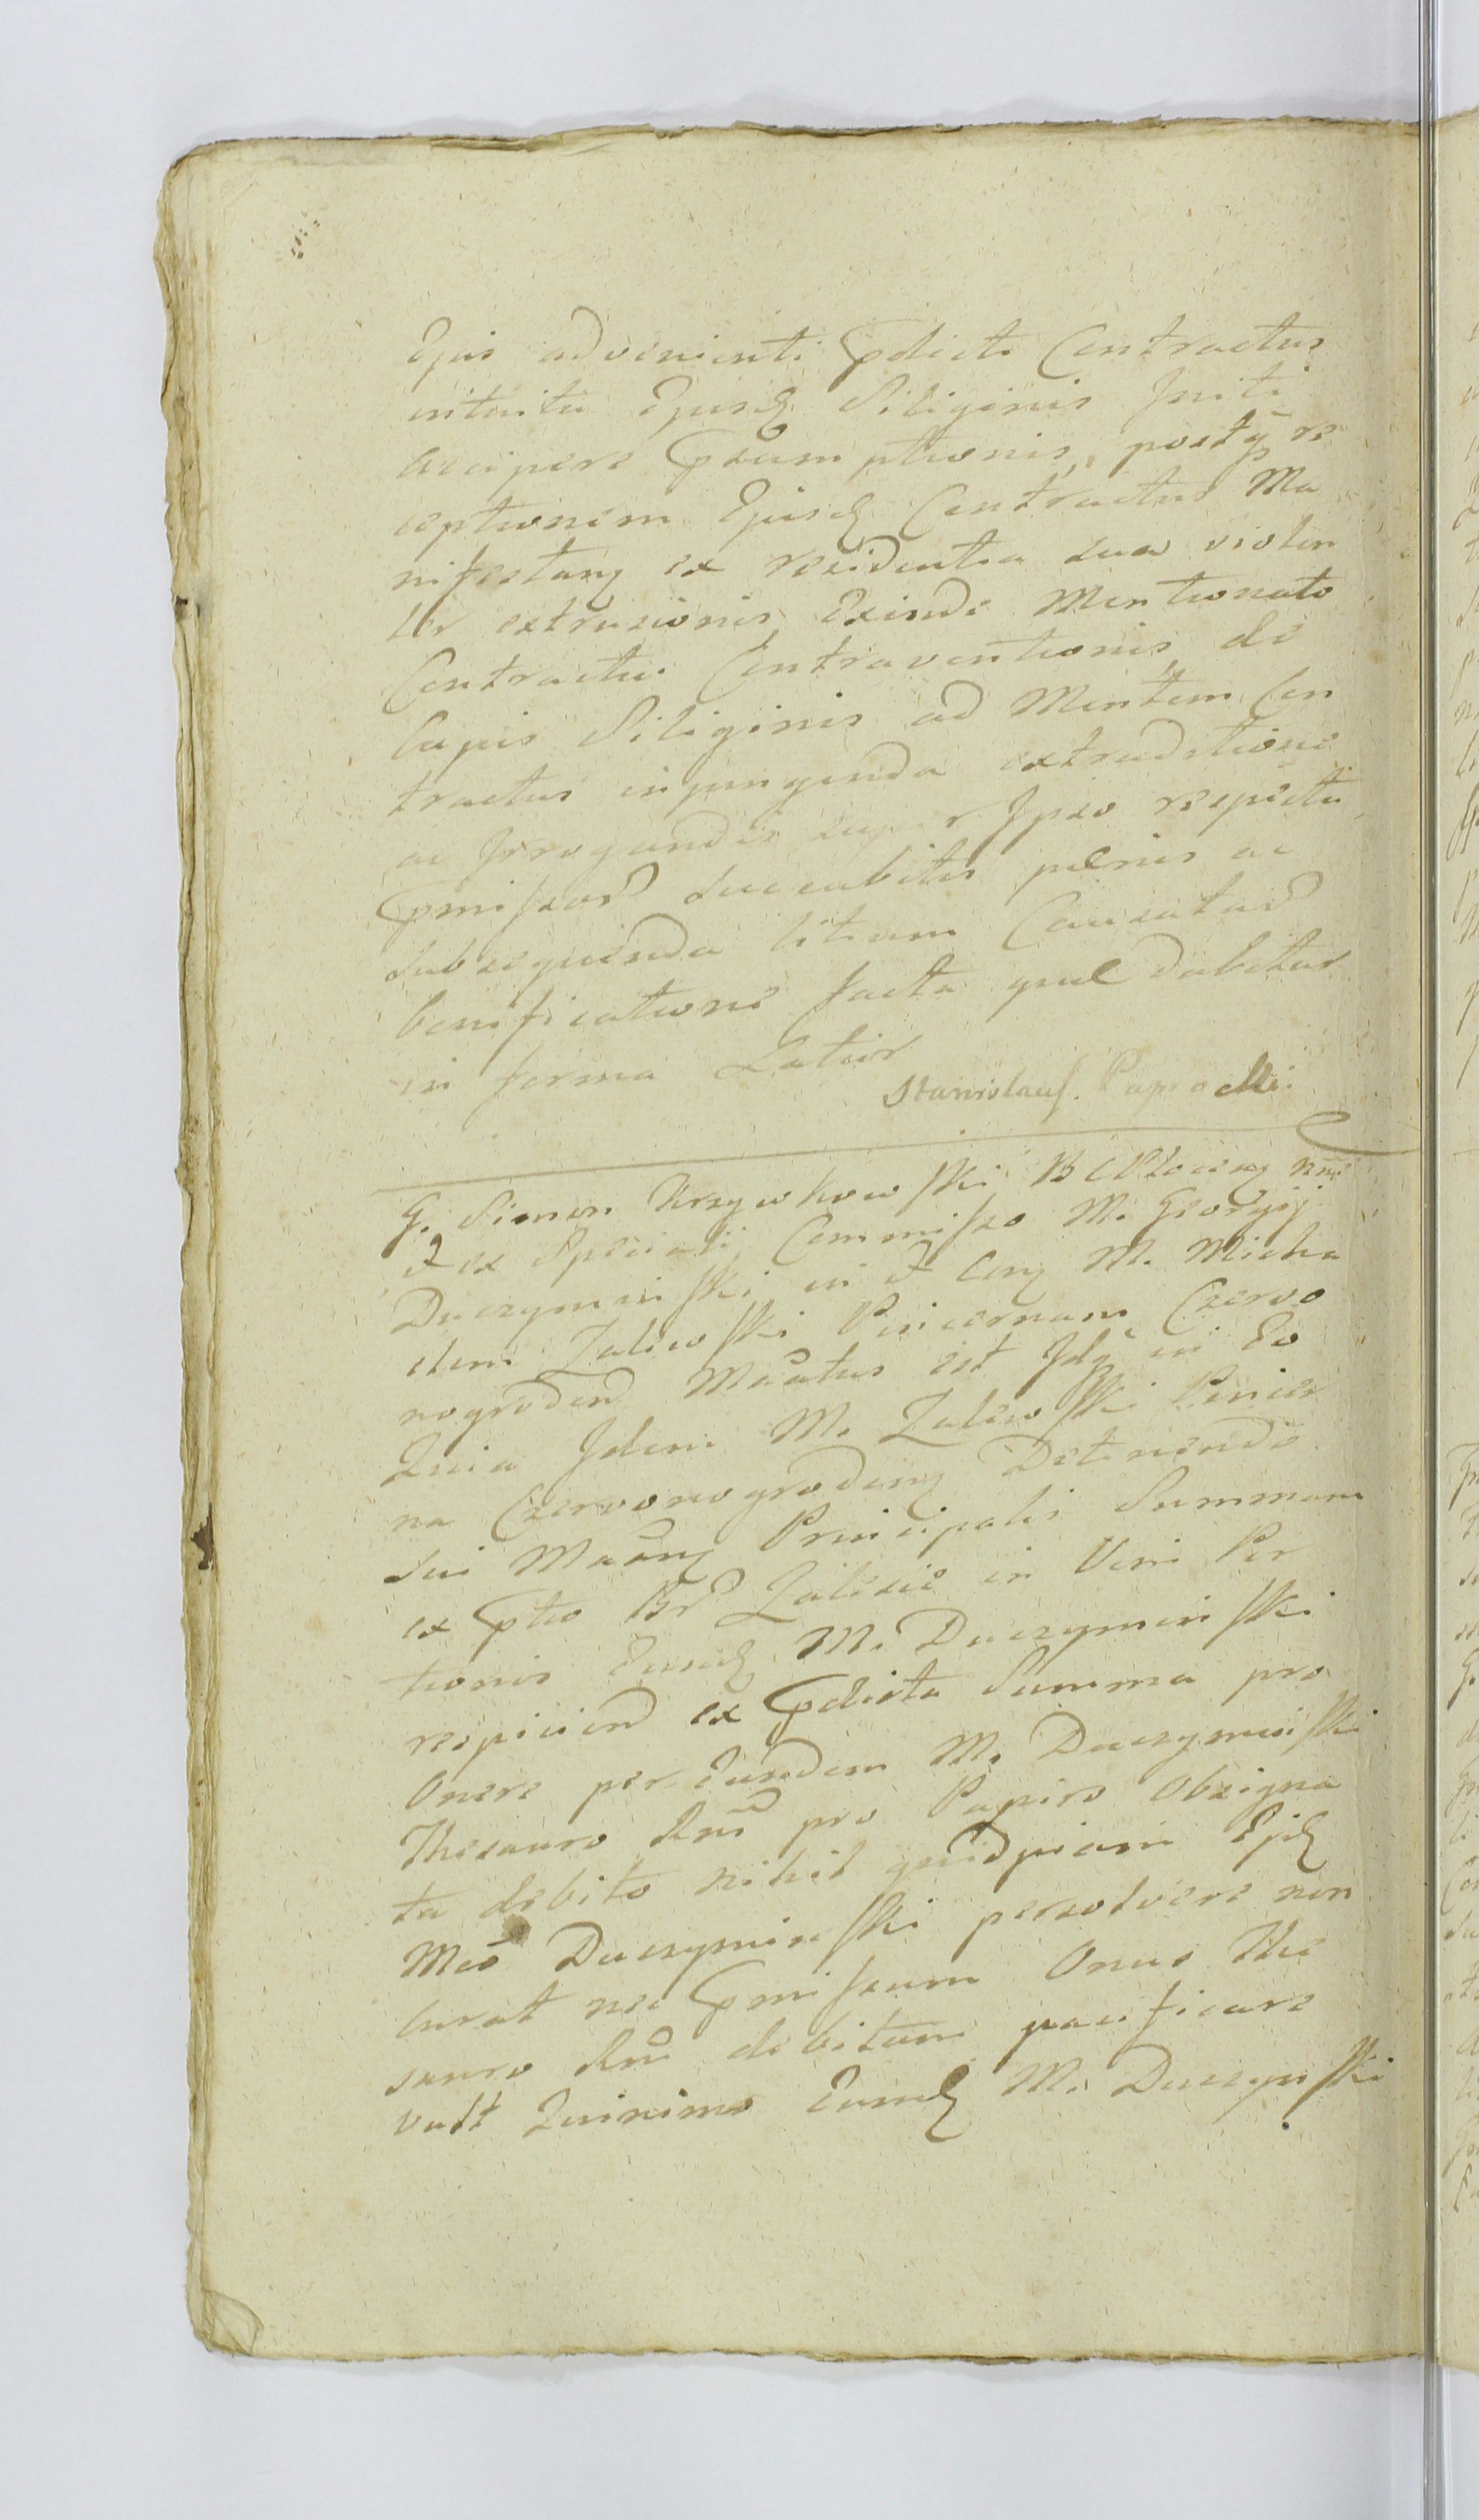 Ejus advenienti pdicti Contractus
intuitu Ejusd Siliginis Initi
accipere psumptionis, postq re
ceptionem Ejusd Contractus Ma
nifestang ex residentia sua violen
ter extrusionis Exinde Mentionato
Contractui Contraventionis de
Capis Siliginis ad Mentem Con
tractus injungenda extraditione
ac Irrogandis super Ipso respectu
pmissor succubitis pœnis ac
subsequenda litium Causatar
bonificatione facta quæ dabitur
in forma Latior
Stanislaus Paprocki

G. Simon Krzywkowski B C Płocens nme
et ex Speciali Commisso M. Georgij
Duczyminski in et con M. Micha
elem Zalewski Pincernam Czerwo
nogroden Mãatus est Idq in Eo
Quia Idem M. Zalewski Pincer
na Czerwonogrodens Detinendo
sui Mãans Principalis Summam
ex pto Br Zalesie in Vim Por
tionis Eund M. Duczyminski
respicien ex pdicta Summa pro
Onere per Eundem M. Duczyminski
Thesauro Rni pro Papiro Obsigna
to debito nihil quidpiam Ejd
Mco Duczyminski persolvere non
curat nec pmissum Onus The
sauro Rni debitum pacificare
vult Quinimo Eumd M. Duczynski